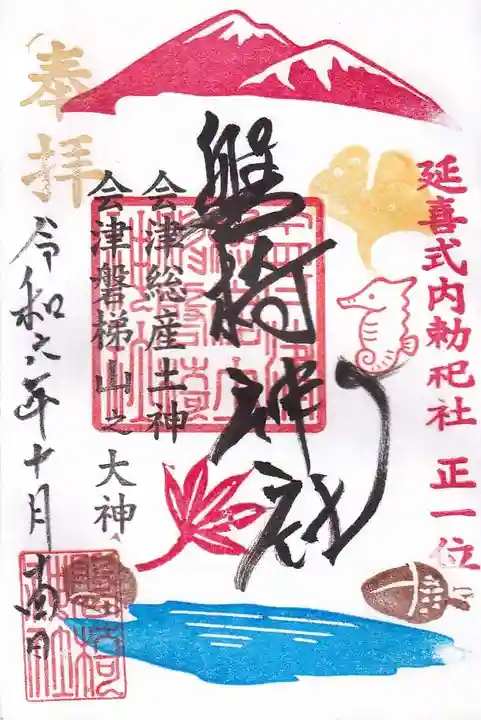 延喜式内勅祀社 正一位
磐椅神社
会津総産土神
会津磐梯山之大神
奉拝
令和六年十月十四日